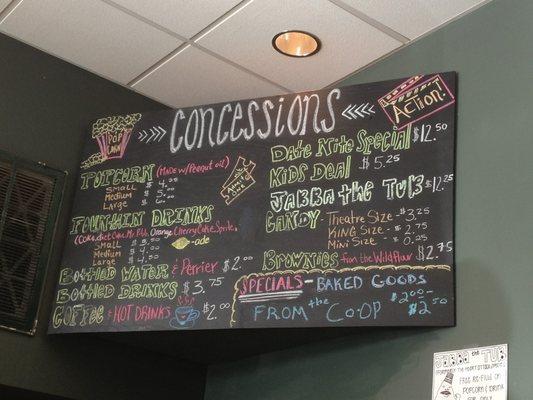 CONCESSIONS
POP CORN
ACTION!
POPCORN (MADE w/ PEANUT OIL)
SMALL
MEDIUM
LARGE
FOUNTAIN DRINKS
(Coke, diet Coke, Mr. Pibb, Orange, Cherry Coke, Sprite,
-ade
SMALL
MEDIUM $4.00
LARGE
BOTTLED WATER & Perrier $2.00
BOTTLED DRINKS $3.75
COFFEE & HOT DRINKS $2.00
DATE NITE SPECIAL $12.50
KIDS DEAL $5.25
JABBA THE TUB $12.25
CANDY - Theatre Size - $3.25
KING Size - $2.75
Mini Size - $0.25
BROWNIES from the Wildflour $2.75
SPECIALS - BAKED GOODS
FROM the CO-OP $2.00 - $2.50
JABBA the TUB
FREE RE-FILL ON
POPCORN & DRINK
FOR ONLY